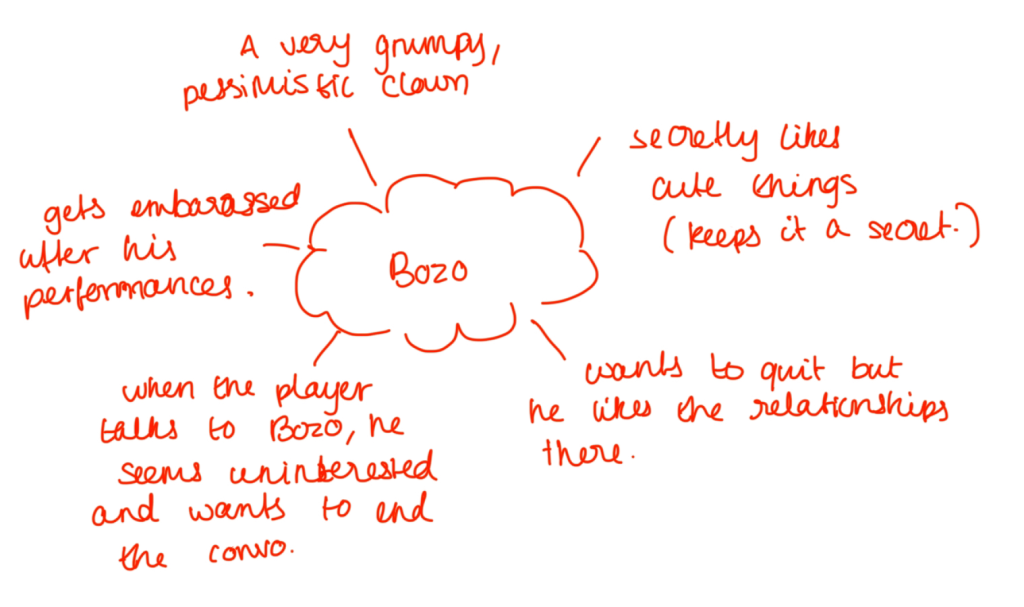 A very grumpy,
pessimistic clown
secretly likes
cute things
(keeps it a secret.)
gets embarassed
after his
performances.
Bozo
when the player
talks to Bozo, he
seems uninterested
and wants to end
the convo.
wants to quit but
he likes the relationships
there.